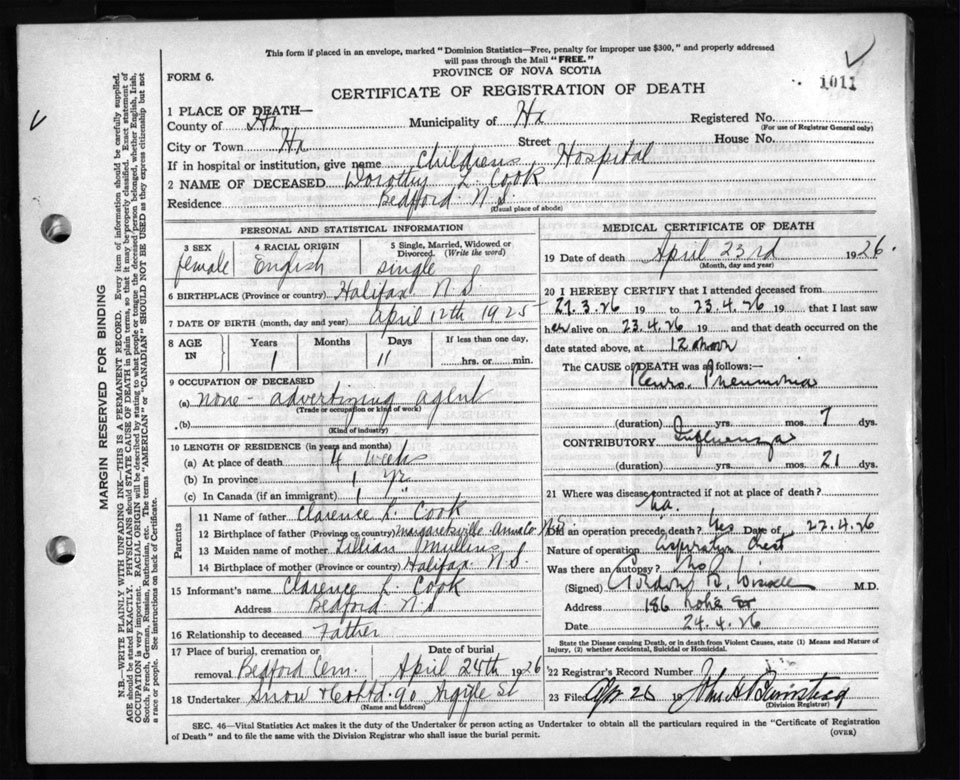 This form if placed in an envelope, marked "Dominion Statistics—Free, penalty for improper use $300," and properly addressed
will pass through the Mail "FREE."
FORM 6.
PROVINCE OF NOVA SCOTIA
1011
CERTIFICATE OF REGISTRATION OF DEATH
1 PLACE OF DEATH—
County of Hx Municipality of Hx Registered No.
(For use of Registrar General only)
City or Town Hx Street House No.
If in hospital or institution, give name Childrens Hospital
2 NAME OF DECEASED Dorothy L. Cook
Residence Bedford N.S.
(Usual place of abode)
PERSONAL AND STATISTICAL INFORMATION
3 SEX 4 RACIAL ORIGIN 5 Single, Married, Widowed or Divorced. (Write the word)
female English single
6 BIRTHPLACE (Province or country) Halifax N.S.
7 DATE OF BIRTH (month, day and year) April 12th 1925
8 AGE IN Years Months Days If less than one day,
1 11 hrs. or min.
9 OCCUPATION OF DECEASED
(a) none - advertizing agent
(Trade or occupation or kind of work)
(b)
(Kind of industry)
10 LENGTH OF RESIDENCE (in years and months)
(a) At place of death 4 weeks
(b) In province 1 yr
(c) In Canada (if an immigrant) 1 "
Parents
11 Name of father Clarence L. Cook
12 Birthplace of father (Province or country) Margaretsville Anna Co N.S.
13 Maiden name of mother Lillian Mullins
14 Birthplace of mother (Province or country) Halifax N.S.
15 Informant's name Clarence L. Cook
Address Bedford N.S
16 Relationship to deceased Father
17 Place of burial, cremation or removal Date of burial
Bedford Cem. April 24th 1926
18 Undertaker Snow & Co Ltd. 90 Argyle St
(Name and address)
MEDICAL CERTIFICATE OF DEATH
19 Date of death April 23rd 1926.
(Month, day and year)
20 I HEREBY CERTIFY that I attended deceased from
27.3.26 19 to 23.4.26 19 that I last saw
her alive on 23.4.26 19 and that death occurred on the
date stated above, at 12 noon
The CAUSE OF DEATH was as follows:—
Pleuro. Pneumonia
(duration) yrs. mos. 7 dys.
CONTRIBUTORY Influenza
(duration) yrs. mos. 21 dys.
21 Where was disease contracted if not at place of death?
Did an operation precede death? Yes Date of 22.4.26
Nature of operation aspiration chest
Was there an autopsy? no
(Signed) Gordon B. Wiswell M.D.
Address 186 St
Date 24.4.26
State the Disease causing Death, or in death from Violent Causes, state (1) Means and Nature of
Injury, (2) whether Accidental, Suicidal or Homicidal.
22 Registrar's Record Number
23 Filed Apr 25 19 John A
(Division Registrar)
SEC. 46—Vital Statistics Act makes it the duty of the Undertaker or person acting as Undertaker to obtain all the particulars required in the "Certificate of Registration
of Death" and to file the same with the Division Registrar who shall issue the burial permit.
(OVER)
MARGIN RESERVED FOR BINDING
N.B.—WRITE PLAINLY WITH UNFADING INK—THIS IS A PERMANENT RECORD. Every item of information should be carefully supplied.
AGE should be stated EXACTLY. PHYSICIANS should STATE CAUSE OF DEATH in plain terms, so that it may be properly classified. Exact statement of
OCCUPATION is very important. RACIAL ORIGIN will be described by stating to what people or tongue the deceased person belonged, whether English, Irish,
Scotch, French, German, Russian, Ruthenian, etc. The terms "AMERICAN" or "CANADIAN" SHOULD NOT BE USED as they express citizenship but not
a race or people. See instructions on back of Certificate.